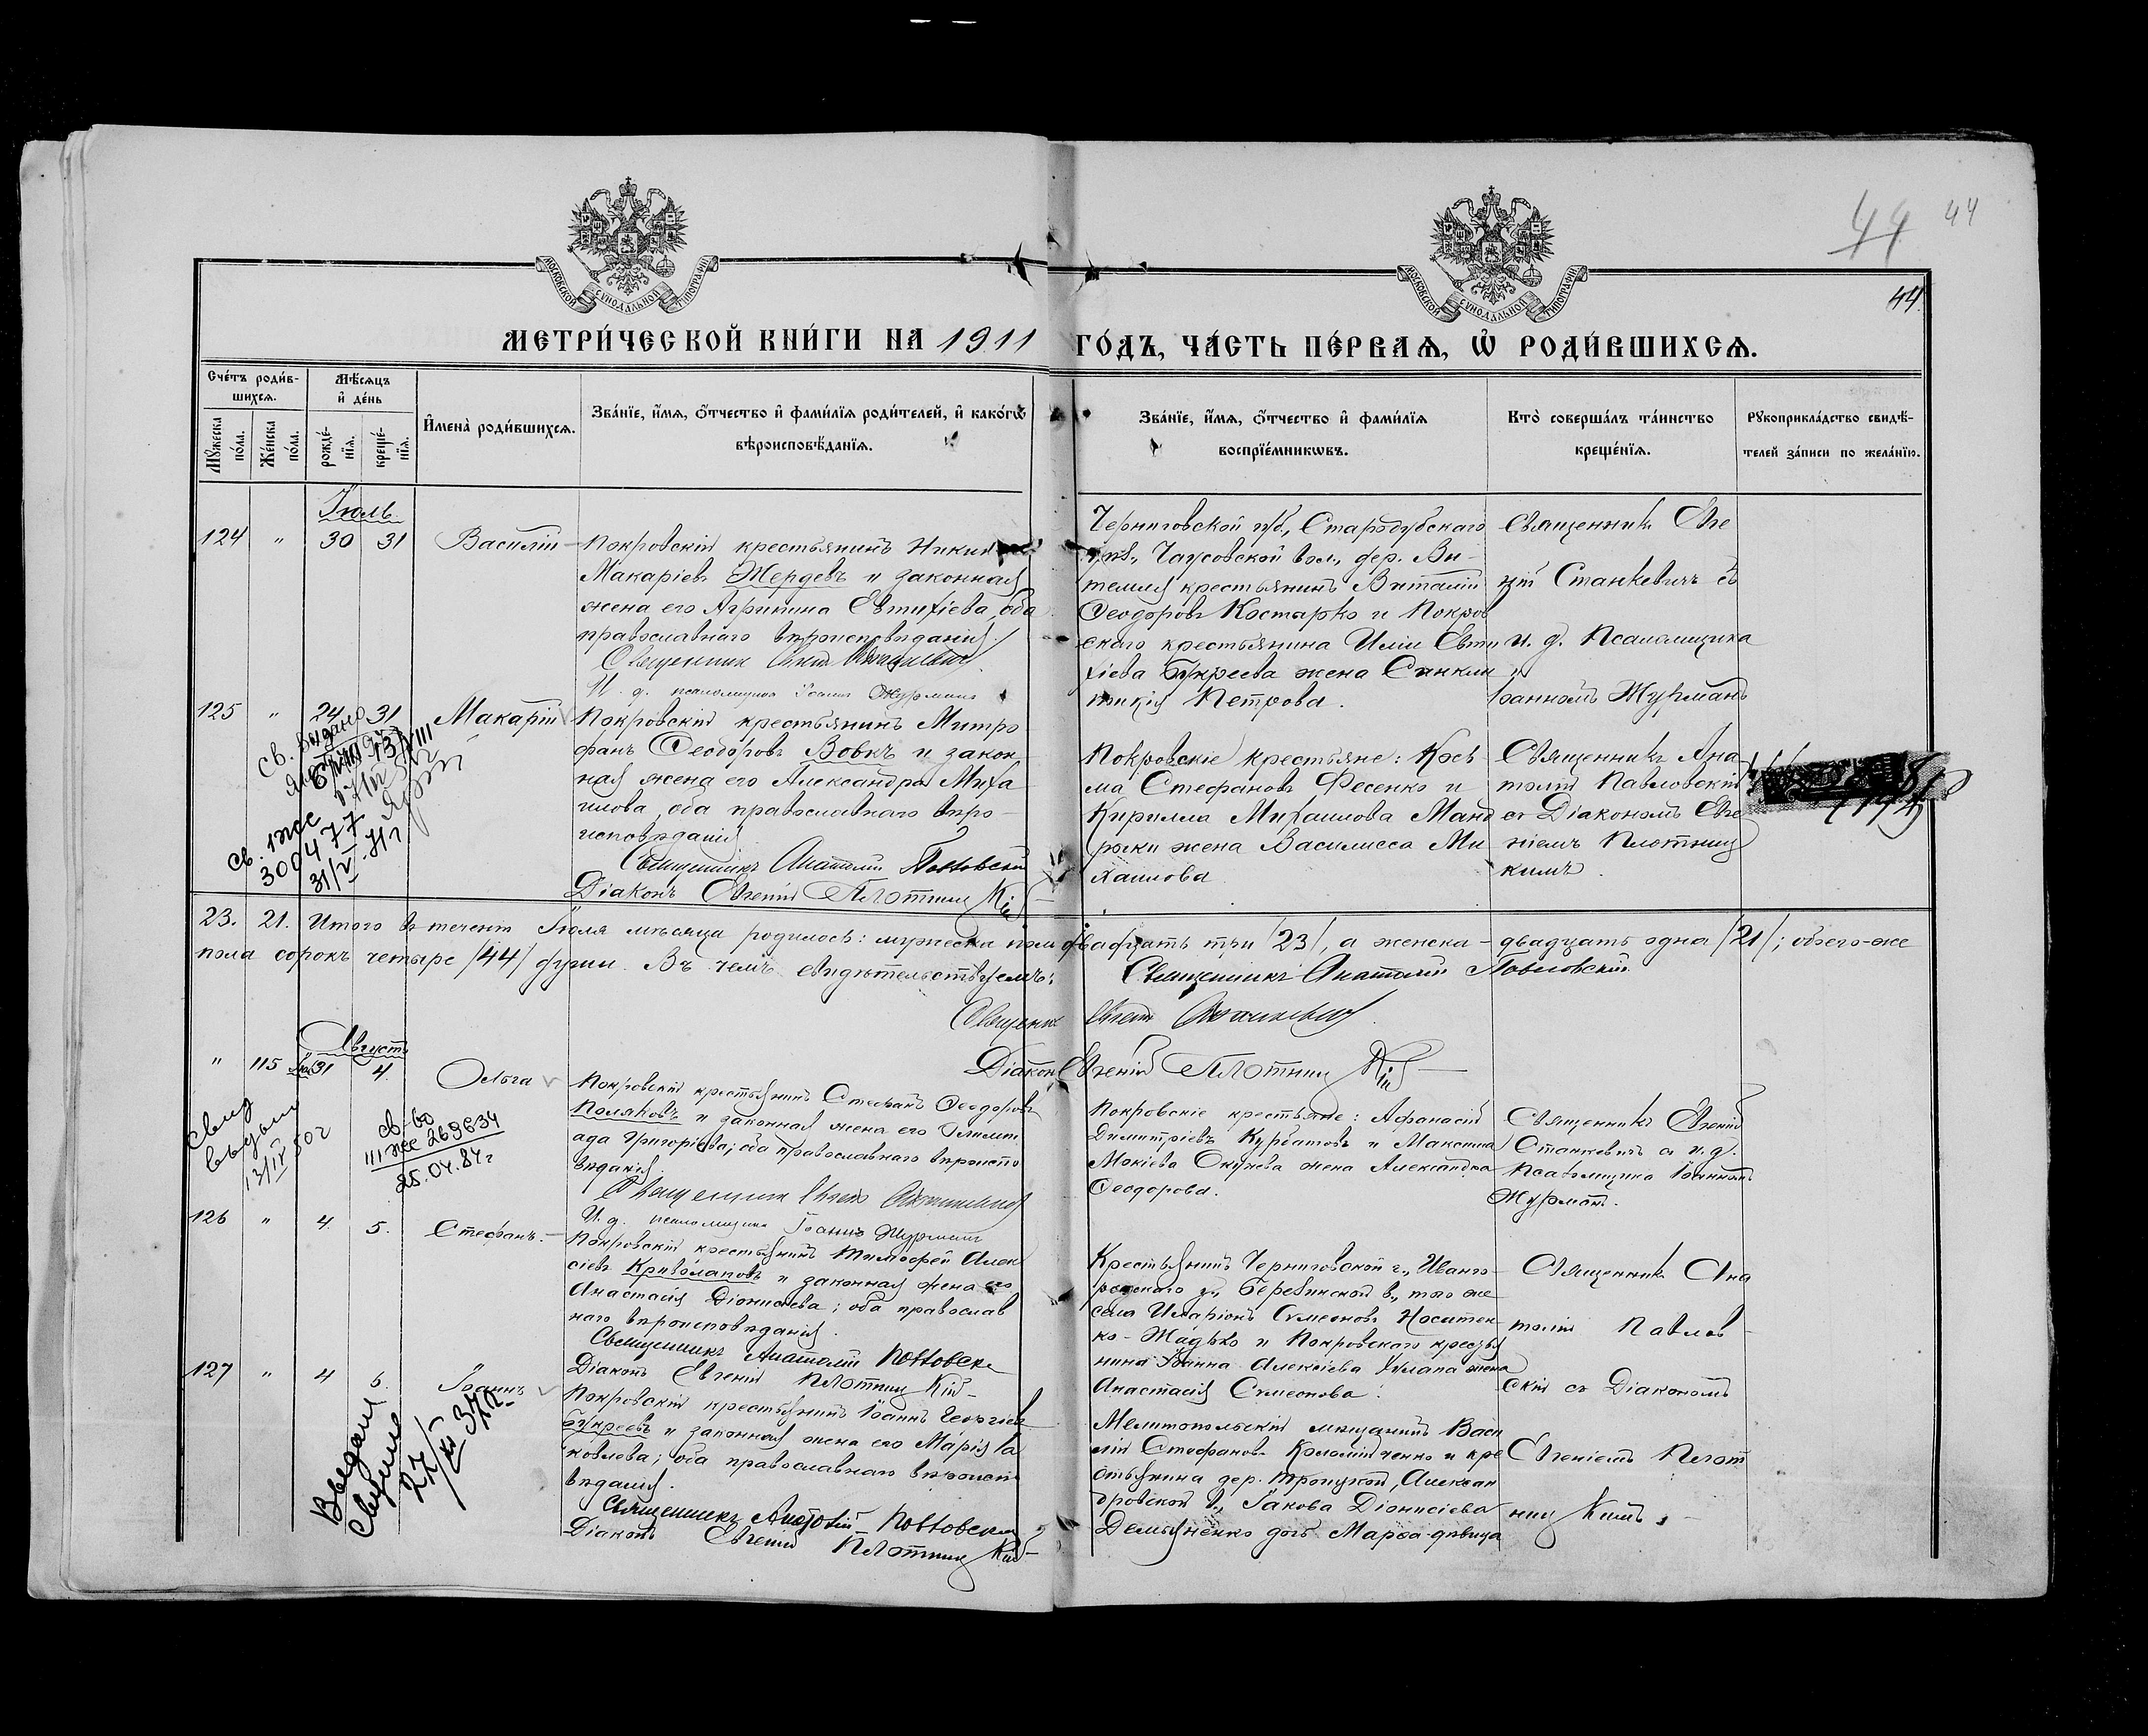 44 44
44
МОСКОВСКОЙ СѴНОДАЛЬНОЙ ТИПОГРАФІИ
МОСКОВСКОЙ СѴНОДАЛЬНОЙ ТИПОГРАФІИ
МЕТРИ́ЧЕСКОЙ КНИ́ГИ НА 1911 ГО́ДЪ, ЧА́СТЬ ПЕ́РВАѦ, Ѡ҆ РОДИ́ВШИХСѦ.
Сче́тъ роди́в-
шихсѧ.
Мꙋ́жеска по́ла.
Же́нска по́ла.
Мѣ́сѧцъ
и҆ де́нь
рожде́-нїѧ.
креще́-нїѧ.
И҆мена̀ роди́вшихсѧ.
Зва́нїе, и҆́мѧ, ѻ҆́тчество и҆ фами́лїѧ роди́телей, и҆ како́гѡ
вѣроисповѣ́данїѧ.
Зва́нїе, и҆́мѧ, ѻ҆́тчество и҆ фами́лїѧ
воспрїе́мникѡвъ.
Кто̀ соверша́лъ та́инство
креще́нїѧ.
Рꙋкоприкла́дство свидѣ́-
телей за́писи по жела́нїю.
Іюль.
124 " 30 31 Василій
Покровскій крестьянинъ
Макаріевъ Жердевъ и законная
жена его Агрипина Евтихіева, оба
православнаго вѣроисповѣданія.
Священник
И. д. псаломщика Іоаннъ Журманъ
Черниговской губ., Стародубскаго
уѣз., Чаусовской вол., дер. Ви-
темля крестьянинъ Виталій
Ѳеодоровъ Костарко и Покров
скаго крестьянина Иліи Евти
хіева Букреева жена Синкли
тикія Петрова.
Священникъ Евге
ній Станкевичъ съ
и. д. Псаломщика
Іоанномъ Журманъ
125 " 24 31 Макарій
Св. выдано
Св. 1 же
300477
31/V. 71г
Покровскій крестьянинъ Митро
фанъ Ѳеодоровъ Вовкъ и закон
ная жена его Александра Миха
илова, оба православнаго вѣро-
исповѣданія.
Священникъ Анатолій Павловскій
Діаконъ Евгеній Плотницкій
Покровскіе крестьяне: Косъ
ма Стефановъ Фесенко и
Кирилла Михаилова Манд
рыки жена Василисса Ми
хаилова
Священникъ Ана
толій Павловскій
съ Діакономъ Евге
ніемъ Плотниц
кимъ.
23. 21. Итого въ теченіи Іюля мѣсяца родилось: мужеска пола двадцать три /23/, а женска - двадцать одна /21/; обоего-же
пола сорокъ четыре /44/ души. Въ чемъ свидѣтельствуемъ:
Священникъ Анатолій Павловскій
Священник Евгеній Станкевич
Діаконъ Евгеній Плотницкій
Августъ
" 115 31 4. Ольга
13/IV 50 г
св-во
III же 269634
25.04.84г
Покровскій крестьянинъ Стефанъ Ѳеодоровъ
Поляковъ и законная жена его
ада Григоріева; оба православнаго вѣроиспо
вѣданія.
Священник Евгеній Станкевич
И. д. псаломщика Іоаннъ Журманъ
Покровскіе крестьяне: Аѳанасій
Димитріевъ Курбатовъ и Максима
Мокіева Окунева жена Александра
Ѳеодорова.
Священникъ Евгеній
Станкевичъ съ и. д.
Псаломщика Іоанномъ
Журманъ.
126 " 4. 5. Стефанъ.
Покровскій крестьянинъ Тимоѳей Алек
сіевъ Криволаповъ и законная жена его
Анастасія Діонисіева; оба православ
наго вѣроисповѣданія.
Священникъ Анатолій Павловскій
Діаконъ Евгеній Плотницкій
Крестьянинъ Черниговской г.,
у., в., того же
села Иларіонъ Сѵмеоновъ Носитен
ко-Жадько и Покровскаго крестья
нина Іоанна Алексіева жена
Анастасія Сѵмеонова.
Священникъ Ана
толій Павлов-
скій съ Діакономъ
127 " 4 6. Іоаннъ
Выдано
27/XI 37 г.
Покровскій крестьянинъ Іоаннъ Георгіевъ
Букреевъ и законная жена его Марія Іа
ковлева; оба православнаго вѣроиспо
вѣданія.
Священникъ Анатолій Павловскій
Діаконъ Евгеній Плотницкій
Мелитопольскій мѣщанинъ Васи
лій Стефановъ Коломійченко и кре
стьянина дер. Троицкой, Алексан
дровской в., Іакова Діонисіева
Демьяненко дочь Марѳа-дѣвица
Евгеніемъ Плот
ницкимъ.